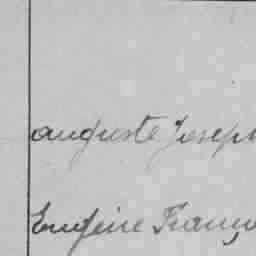 auguste Joseph
Eugène Franç